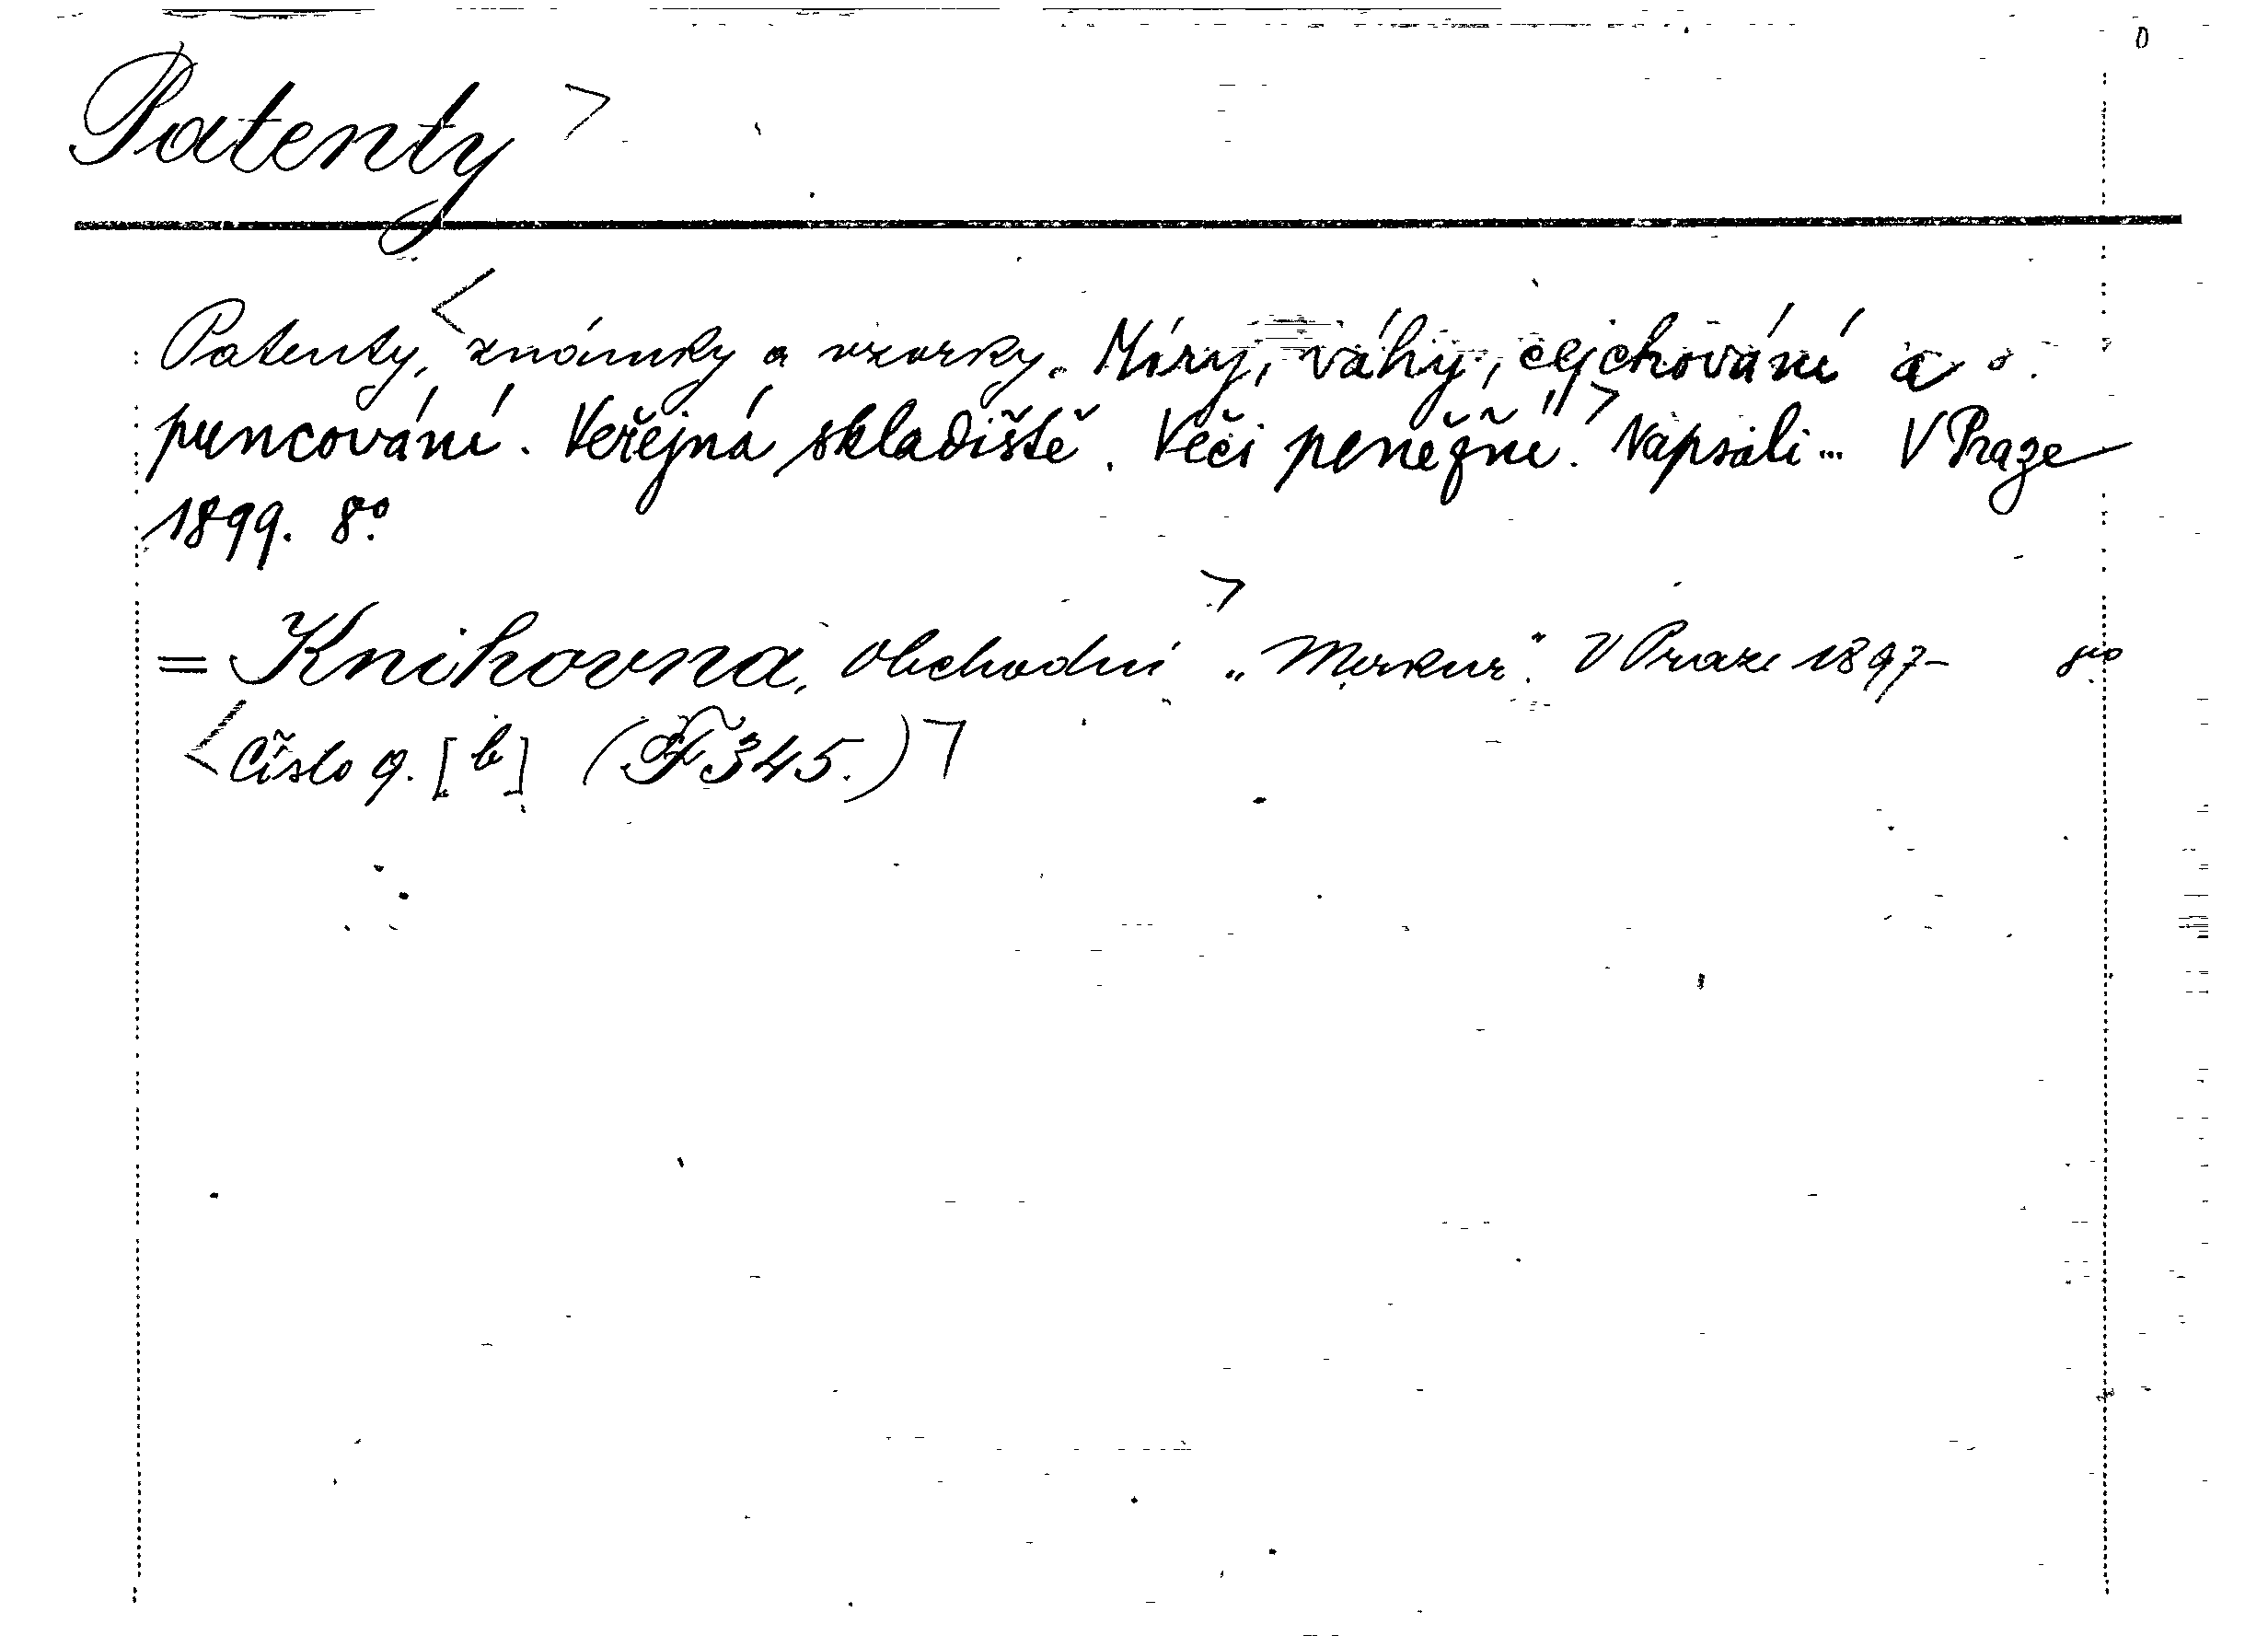 Patenty >
Patenty, < známky a vzorky. Míry, váhy, cejchování a
puncování. Veřejná skladiště. Věci peněžní." > Napsali... V Praze
1899. 8°.
= Knihovna, obchodní > „Merkur“. V Praze 1897- 8°.
< Číslo 9. [b] (F 345.) >